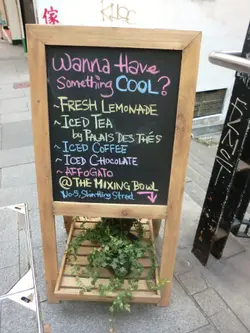 傢
Wanna Have
Something COOL?
~FRESH LEMONADE
~ICED TEA
by PALAIS DES THÉS
~ICED COFFEE
~ICED CHOCOLATE
~AFFOGATO
@ THE MIXING BOWL
No.9, Shin Hing Street